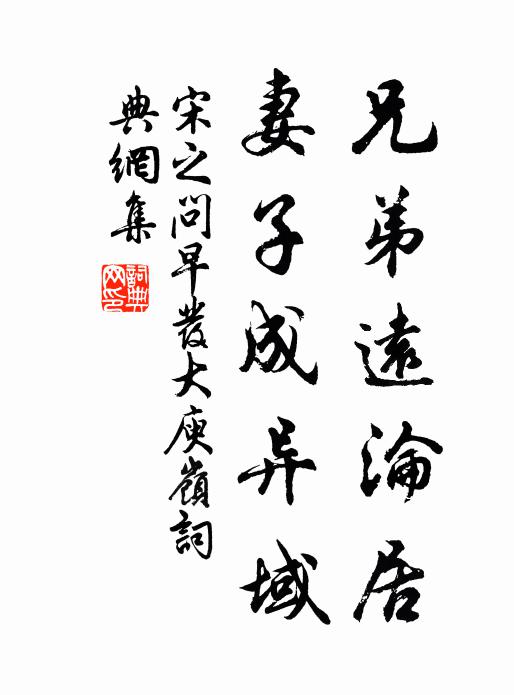 兄弟遠淪居
妻子成异域
宋之問早發大庾嶺詞
典網集
詞典網印